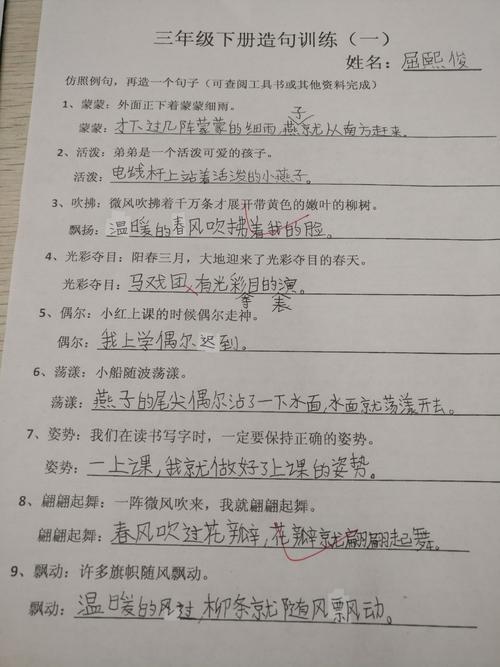 三年级下册造句训练（一）
姓名：屈熙俊
仿照例句，再造一个句子（可查阅工具书或其他资料完成）
1、蒙蒙：外面正下着蒙蒙细雨。
蒙蒙：才下过几阵蒙蒙的细雨，燕子就从南方赶来。
2、活泼：弟弟是一个活泼可爱的孩子。
活泼：电线杆上站着活泼的小燕子。
3、吹拂：微风吹拂着千万条才展开带黄色的嫩叶的柳树。
飘扬：温暖的春风吹拂着我的脸。
4、光彩夺目：阳春三月，大地迎来了光彩夺目的春天。
光彩夺目：马戏团有光彩夺目的演表
5、偶尔：小红上课的时候偶尔走神。
偶尔：我上学偶尔迟到。
6、荡漾：小船随波荡漾。
荡漾：燕子的尾尖偶尔沾了一下水面，水面就荡漾开去。
7、姿势：我们在读书写字时，一定要保持正确的姿势。
姿势：一上课，我就做好了上课的姿势。
8、翩翩起舞：一阵微风吹来，我就翩翩起舞。
翩翩起舞：春风吹过花瓣，花瓣就翩翩起舞。
9、飘动：许多旗帜随风飘动。
飘动：温暖的风过，柳条就随风飘动。